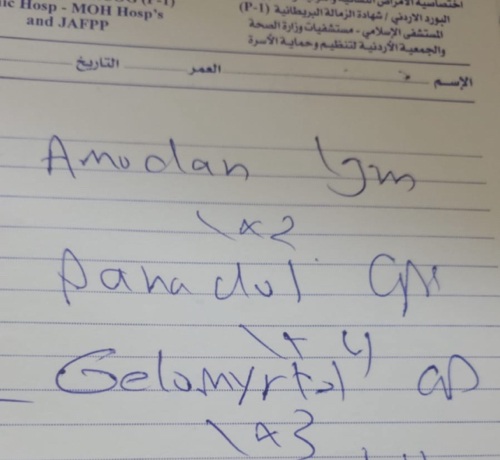 ic Hosp - MOH Hosp's
and JAFPP
البورد الاردني / شهادة الزمالة البريطانية (P-1)
المستشفى الإسلامي - مستشفيات وزارة الصحة
والجمعية الأردنية لتنظيم وحماية الأسرة
الإسم العمر التاريخ
Amodan 1gm
1x2
Panadol
1x4
Gelomyrtol
1x3